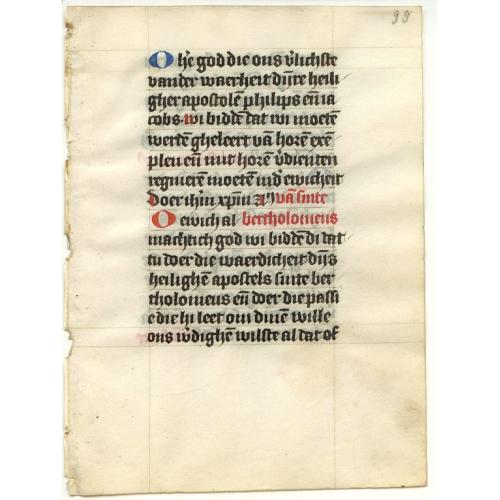 98
O he god die ons v̄lichste
vander waerheit dijre heili
gher apostolē philips eñ ia
cobs. wi biddē dat wi moetē
werdē gheleert vā horē exē
plen eñ mit horē v̄dienten
regnierē moetē in d ewicheit
Doer ihm̄ xpm̄ vā sinte
O ewich al bertholomeus
machtich god wi biddē di dat
tu doer die waerdicheit dijs
heilighē apostels sinte ber
tholomeus eñ doer die passi
e die hi leet om dinē wille
ons w̄dighē wilste al dat of